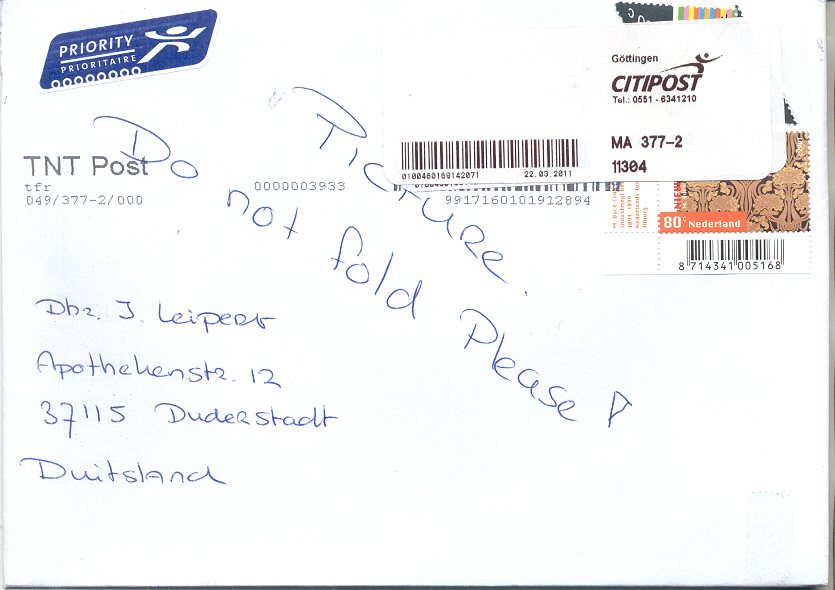 PRIORITY
PRIORITAIRE
Göttingen
CITIPOST
Tel.: 0551 - 6341210
MA 377-2
11304
0100460169142071 22.03.2011
TNT Post
tfr
049/377-2/000
0000003933
9917160101912894
80 Nederland
8 714341 005168
Picture.
Do not fold Please
Dhr. J. Leipert
Apothekenstr. 12
37115 Duderstadt
Duitsland